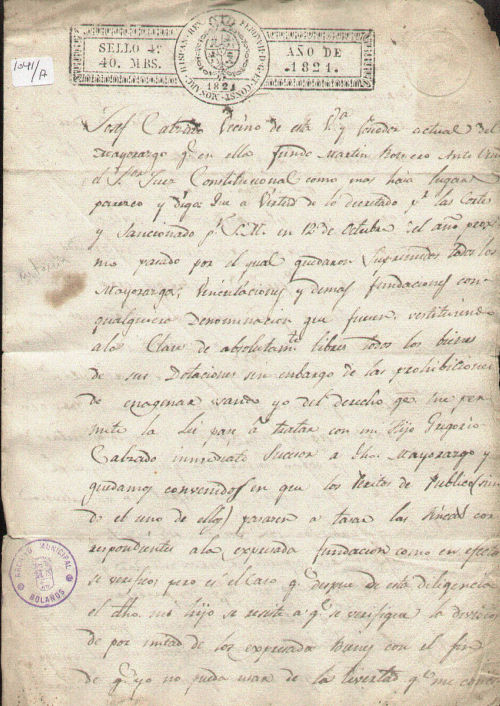 SELLO 4º
40. MRS.
HISPAN. REX. FERDIN. VII. D. G. ET CONST. MON.
1821
AÑO DE
.1821.
1041/A
Josef Calzado Vecino de esta Vª y poseedor actual del
Mayorazgo qe en ella fundo Martin Romero Ante Vm
el Sor Juez Constitucional como mas haia lugar
paresco y digo: Que a Virtud de lo decretado pr las Cortes
y Sancionado pr S.M. en 12 de Octubre del año proxi
mo pasado por el qual quedaron Suprimidos todos los
Mayorazgos, Vinculaciones, y demas fundaciones con
qualquiera Denominacion que fuesen, restituiendo
ala Clase de absolutamte libres todos los bienes
de sus Dotaciones sin embargo de las prohibiciones
de enagenar usando yo del derecho qe me per
mite la Lei pase á tratar con mi Hijo Gregorio
Calzado inmediato Sucesor a dho. Mayorazgo y
quedamos convenidos en que los Peritos de Publico (sien
do el uno de ellos) pasasen a tasar las fincas co
rrespondientes ala expresada fundacion como en efecto
se verifico pero es el Caso qe despues de esta diligencia
el dho. mi hijo se resiste a qe se verifique la division
de por mitad de los expresados Bienes con el fin
de qe yo no pueda usar de la libertad qe me conce
ARCHIVO MUNICIPAL
BOLAÑOS